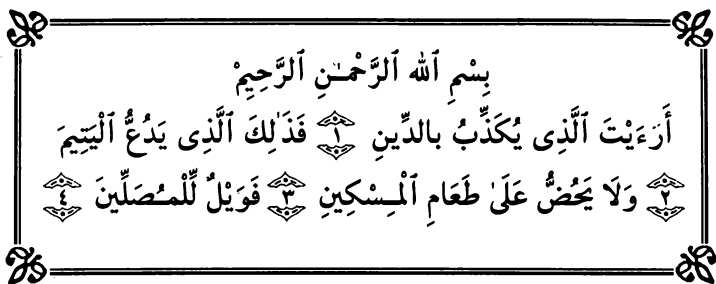 بِسْمِ ٱللهِ ٱلرَّحْمَـٰنِ ٱلرَّحِيمْ
أَرَءَيْتَ ٱلَّذِى يُكَذِّبُ بالدِّينِ ١ فَذَٰلِكَ ٱلَّذِى يَدُعُّ ٱلْيَتِيمَ
٢ وَلَا يَحُضُّ عَلَىٰ طَعَامِ ٱلْمِسْكِينِ ٣ فَوَيْلٌ لِّلْمُصَلِّينَ ٤